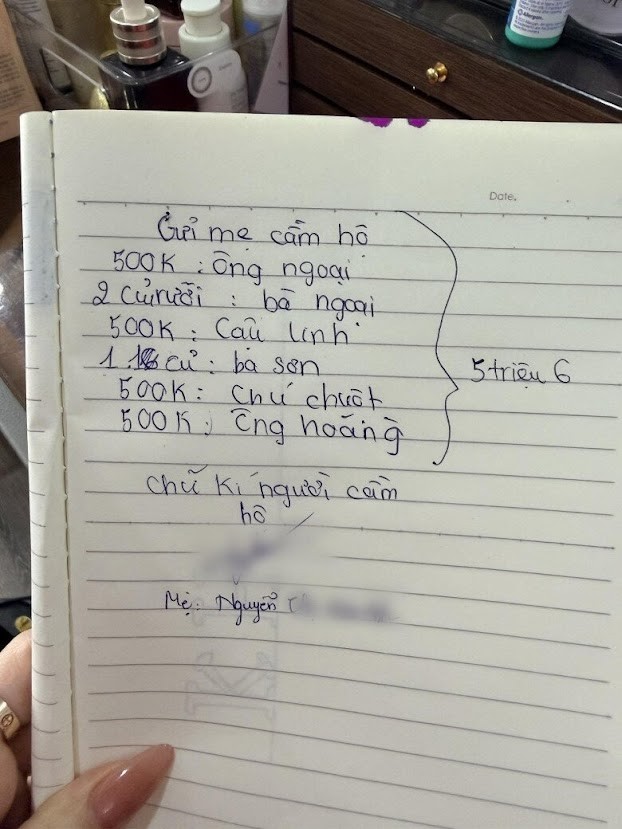 Date.
Gửi mẹ cầm hộ
500K : Ông ngoại
2 củ rưỡi : bà ngoại
500K : Cậu Linh
1.1 củ : bà sơn
500K : Chú chuột
500K : Ông hoáng
5 triệu 6
chữ kí người cầm
hộ
Mẹ: Nguyễn